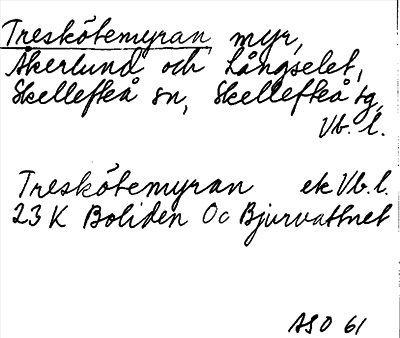 Treskötemyran, myr,
Åkerlund och Långselet,
Skellefteå sn, Skellefteå tg,
Vb. l.
Treskötemyran ek Vb. l.
23 K Boliden Oc Bjurvattnet
ASO 61